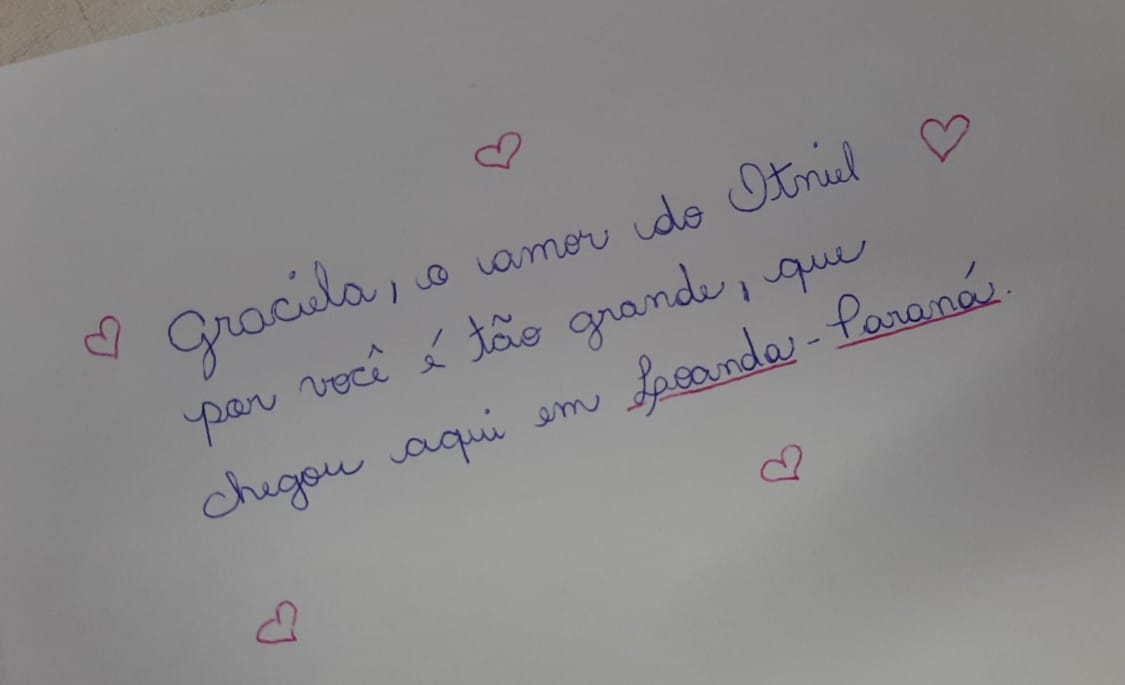 Graciela, o amor do Otniel
por você é tão grande, que
chegou aqui em Loanda - Paraná.